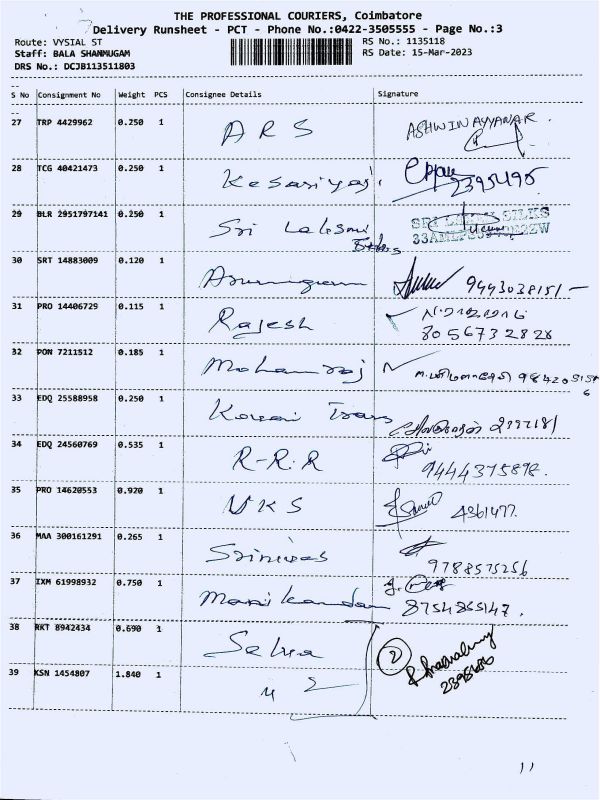 THE PROFESSIONAL COURIERS, Coimbatore
Delivery Runsheet - PCT - Phone No.:0422-3505555 - Page No.:3
Route: VYSIAL ST
RS No.: 1135118
Staff: BALA SHANMUGAM
RS Date: 15-Mar-2023
DRS No.: DCJB113511803
S No Consignment No Weight PCS Consignee Details Signature
27 TRP 4429962 0.250 1 ARS ASHWIN AYYANAR.
28 TCG 40421473 0.250 1 Kesariyaji 2395495
29 BLR 2951797141 0.250 1 Sri Lakshmi SRI SILKS
30 SRT 14883009 0.120 1 Arumugam 9443038151-
31 PRO 14406729 0.115 1 Rajesh
8056732828
32 PON 7211512 0.185 1 Mohanraj
33 EDQ 25588958 0.250 1
34 EDQ 24560769 0.535 1 R-R.R
9444375898.
35 PRO 14620553 0.920 1 UKS
36 MAA 300161291 0.265 1 Srinivas
9788575256
37 IXM 61998932 0.750 1 Manikandan
38 RKT 8942434 0.690 1 Selva 2
39 KSN 1454807 1.840 1
11